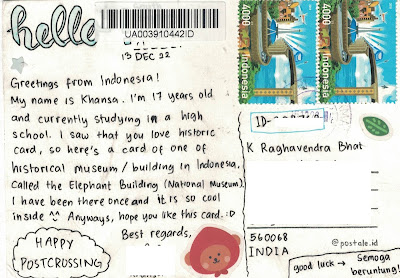 hello
UA003910442ID
13 DEC 22
4000
Indonesia
4000
Indonesia
Greetings from Indonesia!
My name is Khansa. I'm 17 years old
and currently studying in a high
school. I saw that you love historic
card, so here's a card of one of
historical museum / building in Indonesia.
Called the Elephant Building (National Museum).
I have been there once and it is so cool
inside ^^ Anyways, hope you like this card. :D
Best regards,
HAPPY
POSTCROSSING
K Raghavendra Bhat
560068
INDIA
@postale.id
good luck → Semoga
beruntung!